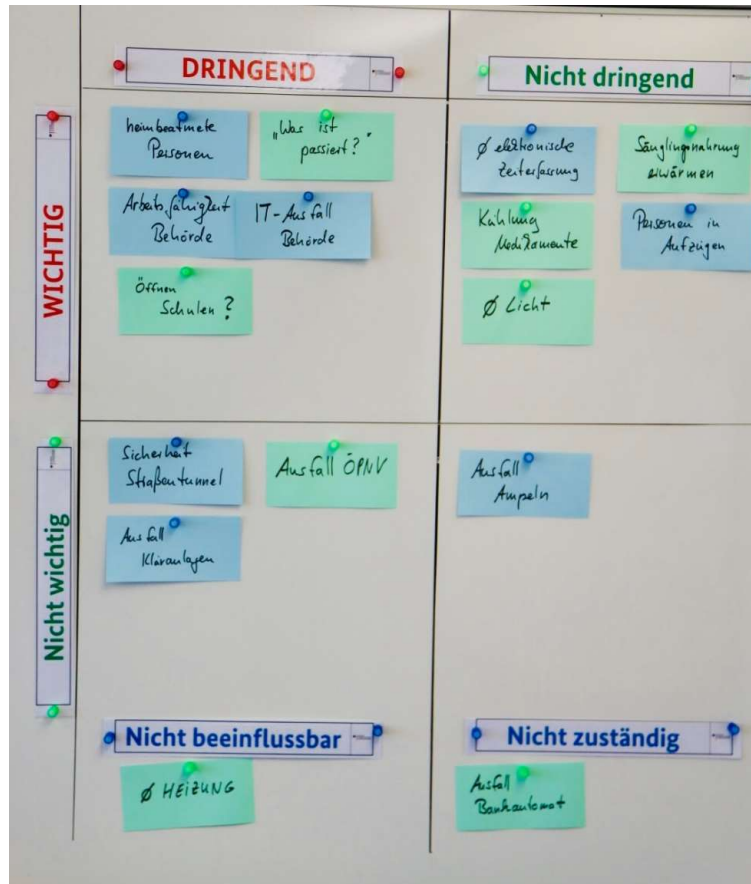 DRINGEND
Nicht dringend
WICHTIG
heimbeatmete
Personen
„Was ist
passiert?"
Arbeitsfähigkeit
Behörde
IT-Ausfall
Behörde
Öffnen
Schulen?
Ø elektronische
Zeiterfassung
Säuglingsnahrung
erwärmen
Kühlung
Medikamente
Personen in
Aufzügen
Ø Licht
Nicht wichtig
Sicherheit
Straßentunnel
Ausfall ÖPNV
Ausfall
Kläranlagen
Ausfall
Ampeln
Nicht beeinflussbar
Ø HEIZUNG
Nicht zuständig
Ausfall
Bankautomat